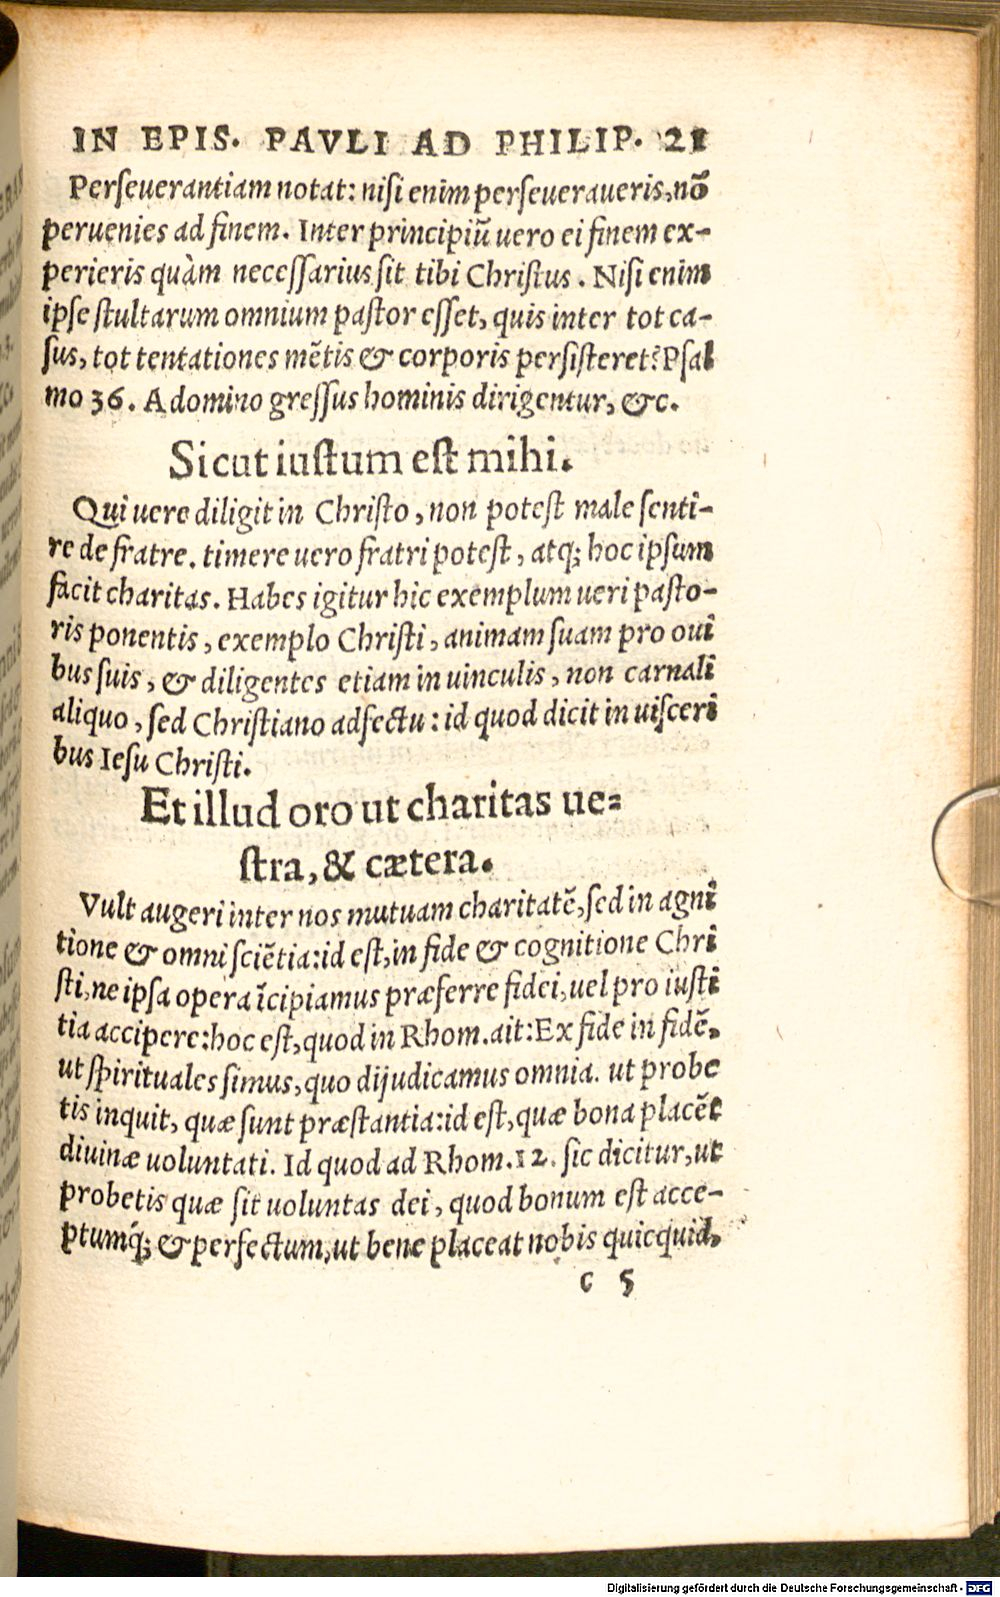 IN EPIS. PAVLI AD PHILIP. 21
Perseuerantiam notat: nisi enim perseueraueris, nō
peruenies ad finem. Inter principiū uero ei finem ex-
perieris quàm necessarius sit tibi Christus. Nisi enim
ipse stultarum omnium pastor esset, quis inter tot ca-
sus, tot tentationes mētis & corporis persisteret? Psal
mo 36. A domino gressus hominis dirigentur, &c.
Sicut iustum est mihi.
Qui uere diligit in Christo, non potest male senti-
re de fratre. timere uero fratri potest, atq; hoc ipsum
facit charitas. Habes igitur hic exemplum ueri pasto-
ris ponentis, exemplo Christi, animam suam pro oui
bus suis, & diligentes etiam in uinculis, non carnali
aliquo, sed Christiano adfectu: id quod dicit in uisceri
bus Iesu Christi.
Et illud oro ut charitas ue=
stra, & cætera.
Vult augeri inter nos mutuam charitatē, sed in agni
tione & omni sciētia: id est, in fide & cognitione Chri
sti, ne ipsa opera īcipiamus præferre fidei, uel pro iusti
tia accipere: hoc est, quod in Rhom. ait: Ex fide in fidē,
ut spirituales simus, quo dijudicamus omnia. ut probe
tis inquit, quæ sunt præstantia: id est, quæ bona placēt
diuinæ uoluntati. Id quod ad Rhom. 12. sic dicitur, ut
probetis quæ sit uoluntas dei, quod bonum est acce-
ptumq́; & perfectum, ut bene placeat nobis quicquid,
c 5
Digitalisierung gefördert durch die Deutsche Forschungsgemeinschaft - DFG